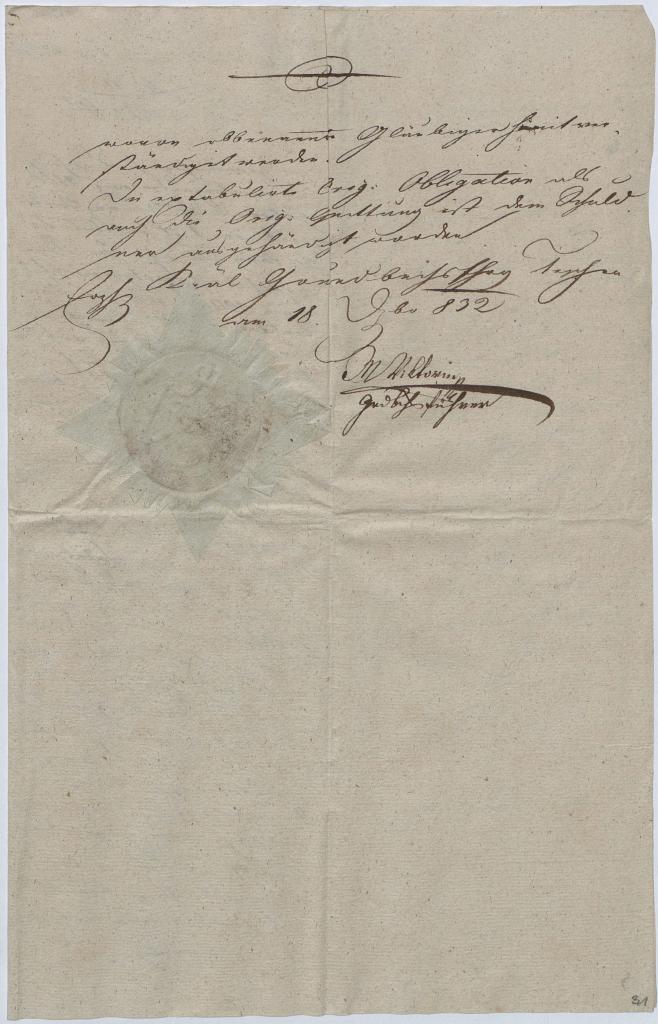 wovon obbenennte Gläubiger hiemit ver-
ständiget werden.
Die extabulirte Orig: Obligation als
auch die Orig: Quittung ist dem Schuld
ner ausgehändigt worden
Erzh: Kaal Teschen
am 18. Xbr 832
M Viktorin
Grdbchführer
31